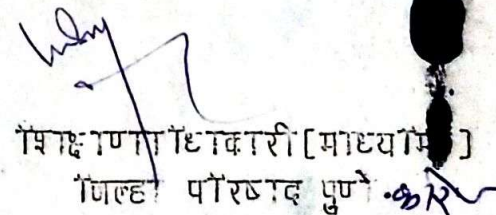 शिक्षणाधिकारी [माध्यमि]
जिल्हा परिषद पुणे.